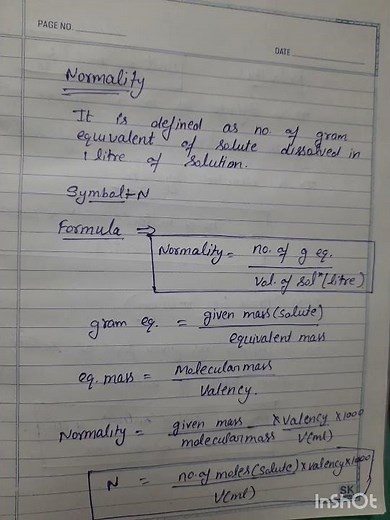 PAGE NO.
DATE
Normality
It is defined as no. of gram
equivalent of solute dissolved in
1 litre of solution.
Symbol:- N
Formula ⇒
Normality = no. of g eq. / Vol. of solⁿ (litre)
gram eq. = given mass (solute) / equivalent mass
eq. mass = Molecular mass / Valency.
Normality = given mass / molecular mass × Valency × 1000 / V(ml)
N = no. of moles (solute) × valency × 1000 / V(ml)
SK
InShOt